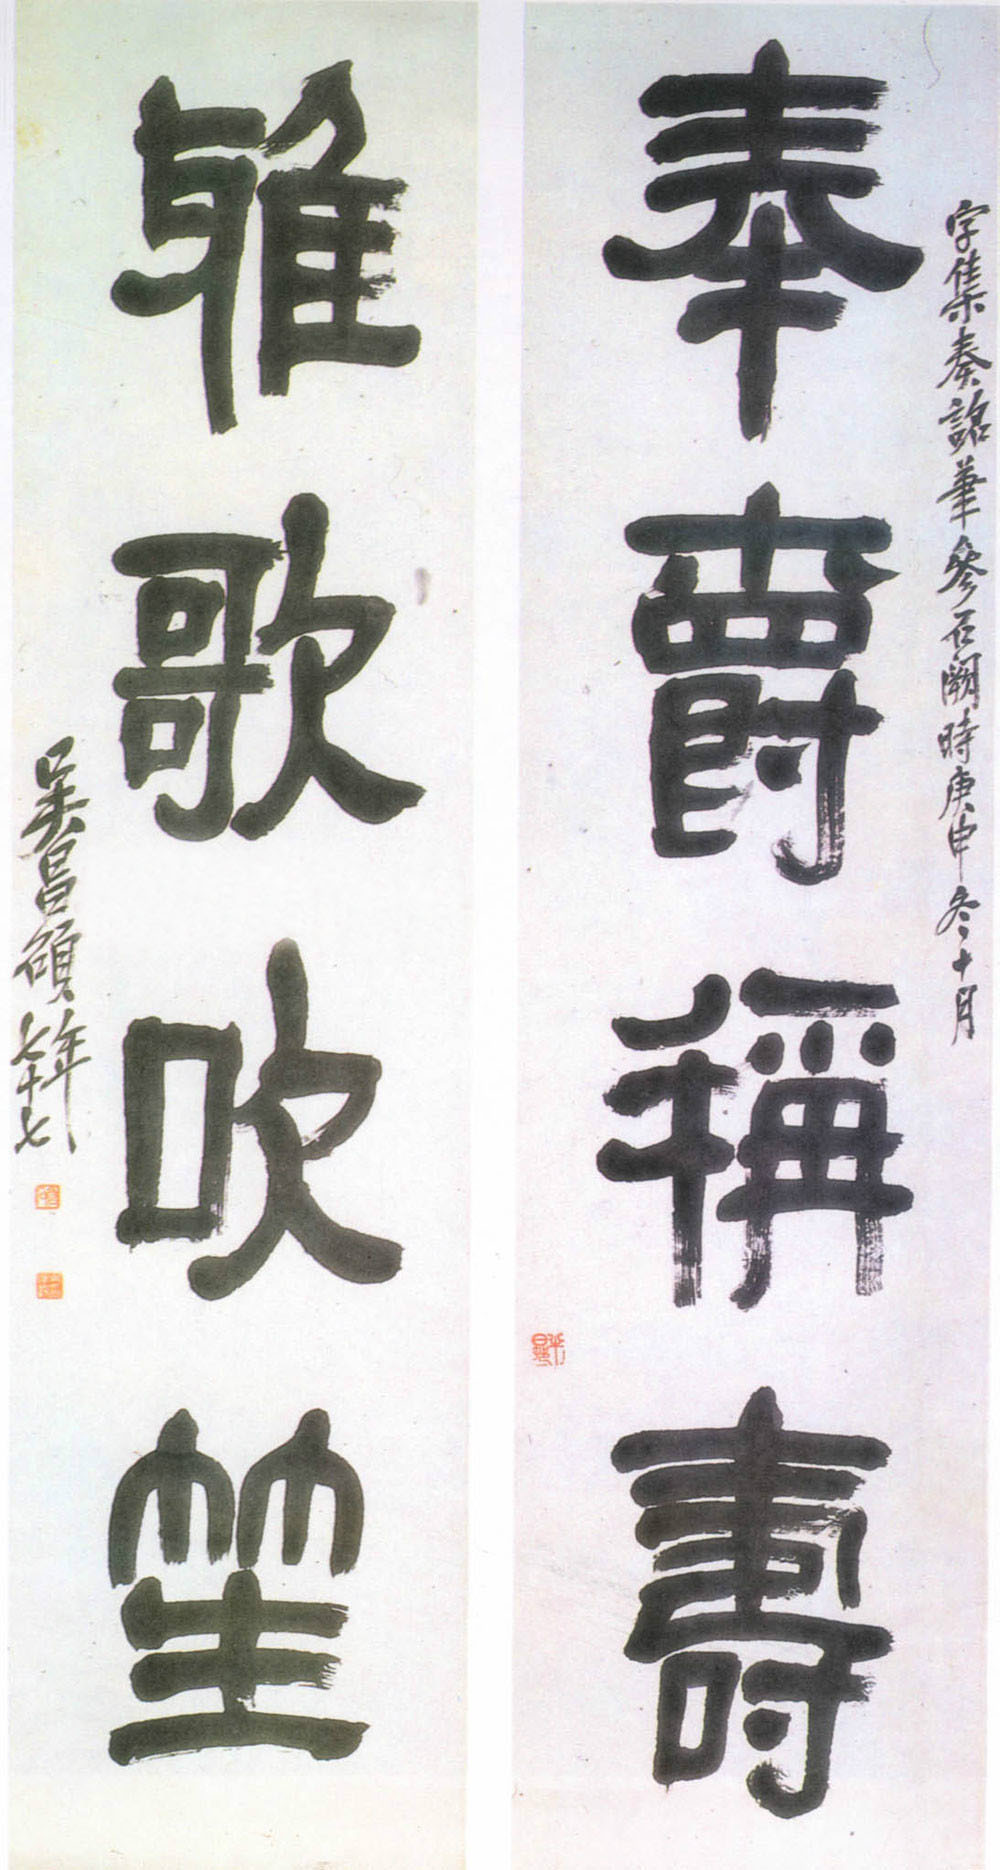 字集奏詺筆參石闕時庚申冬十月
奉爵稱壽
雅歌吹笙
吳昌碩年七十七